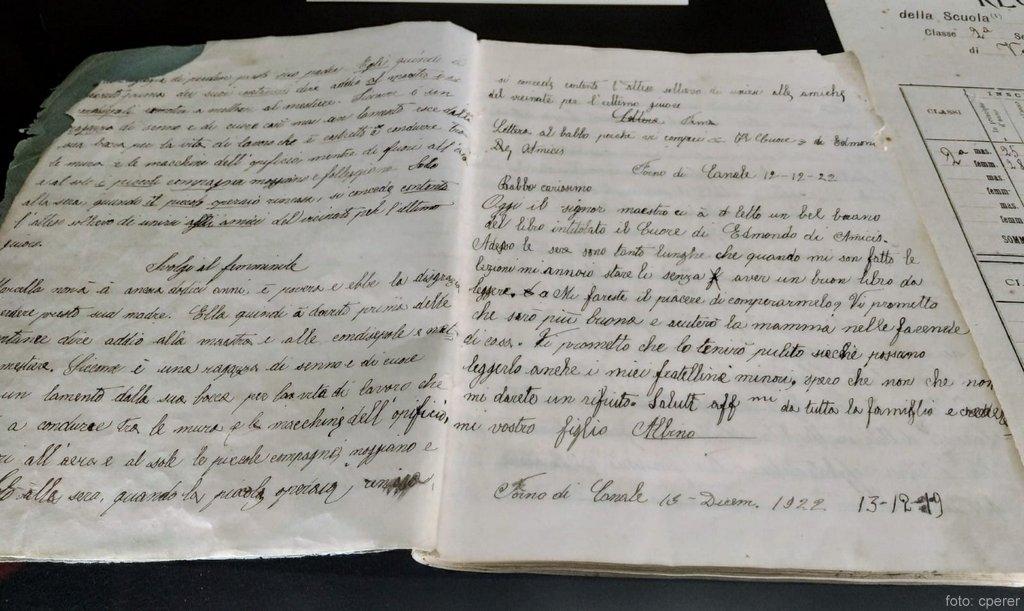 perdere presto sua madre. Egli quindi
dovuto prima dei suoi coetanei dire addio al maestro e ai
condiscepoli e mettersi al mestiere. Siccome è un
ragazzo di senno e di cuore così mai un lamento esce dalla
sua bocca per la vita di lavoro che è costretto a condurre tra
le mura e le macchine dell'opificio, mentre di fuori all'
e al sole i piccoli compagni e folleggiano. Solo
alla sera, quando il piccolo operaio rincasa, si concede contento
l'altro sollievo di unirsi agli amici del vicinato per l'ultimo
giuoco.
Svolgo al femminile
non à ancora dodici anni, è povera e ebbe la disgrazia
perdere presto sua madre. Ella quindi à dovuto prima delle
dire addio alla maestra e alle condiscepole e
mestiere. Siccome è una ragazza di senno e di cuore
un lamento dalla sua bocca per la vita di lavoro che
a condurre tra le mura e le macchine dell'opificio,
all'aera e al sole le piccole compagne e
alla sera, quando la piccola operaia rincasa
si concede contenta l'altro sollievo di unirsi alle amiche
del vicinato per l'ultimo giuoco
Lettera
Lettera al babbo perché vi compri il « Il Cuore » de Edmondo
De Amicis
Forno di Canale 12-12-22
Babbo carissimo
Oggi il signor maestro ci à letto un bel brano
del libro intitolato il Cuore di Edmondo di Amicis.
Adesso le sere sono tanto lunghe che quando mi son fatto le
lezioni mi annoio stare lì senza aver un buon libro da
leggere. Mi fareste il piacere di comperarmelo? Vi prometto
che sarò più buono e aiuterò la mamma nelle facende
di casa. Vi prometto che lo tenirò pulito sicché possano
leggerlo anche i miei fratellini minori, spero che non che non
mi darete un rifiuto. Saluti aff mi da tutta la famiglia e
mi vostro figlio Albino
Forno di Canale 13 Dicem. 1922 13-12-
della Scuola (1)
Classe 2ª
di
CLASSI
2ª mas. 25
femm.
mas.
femm.
mas.
femm.
foto: cperer